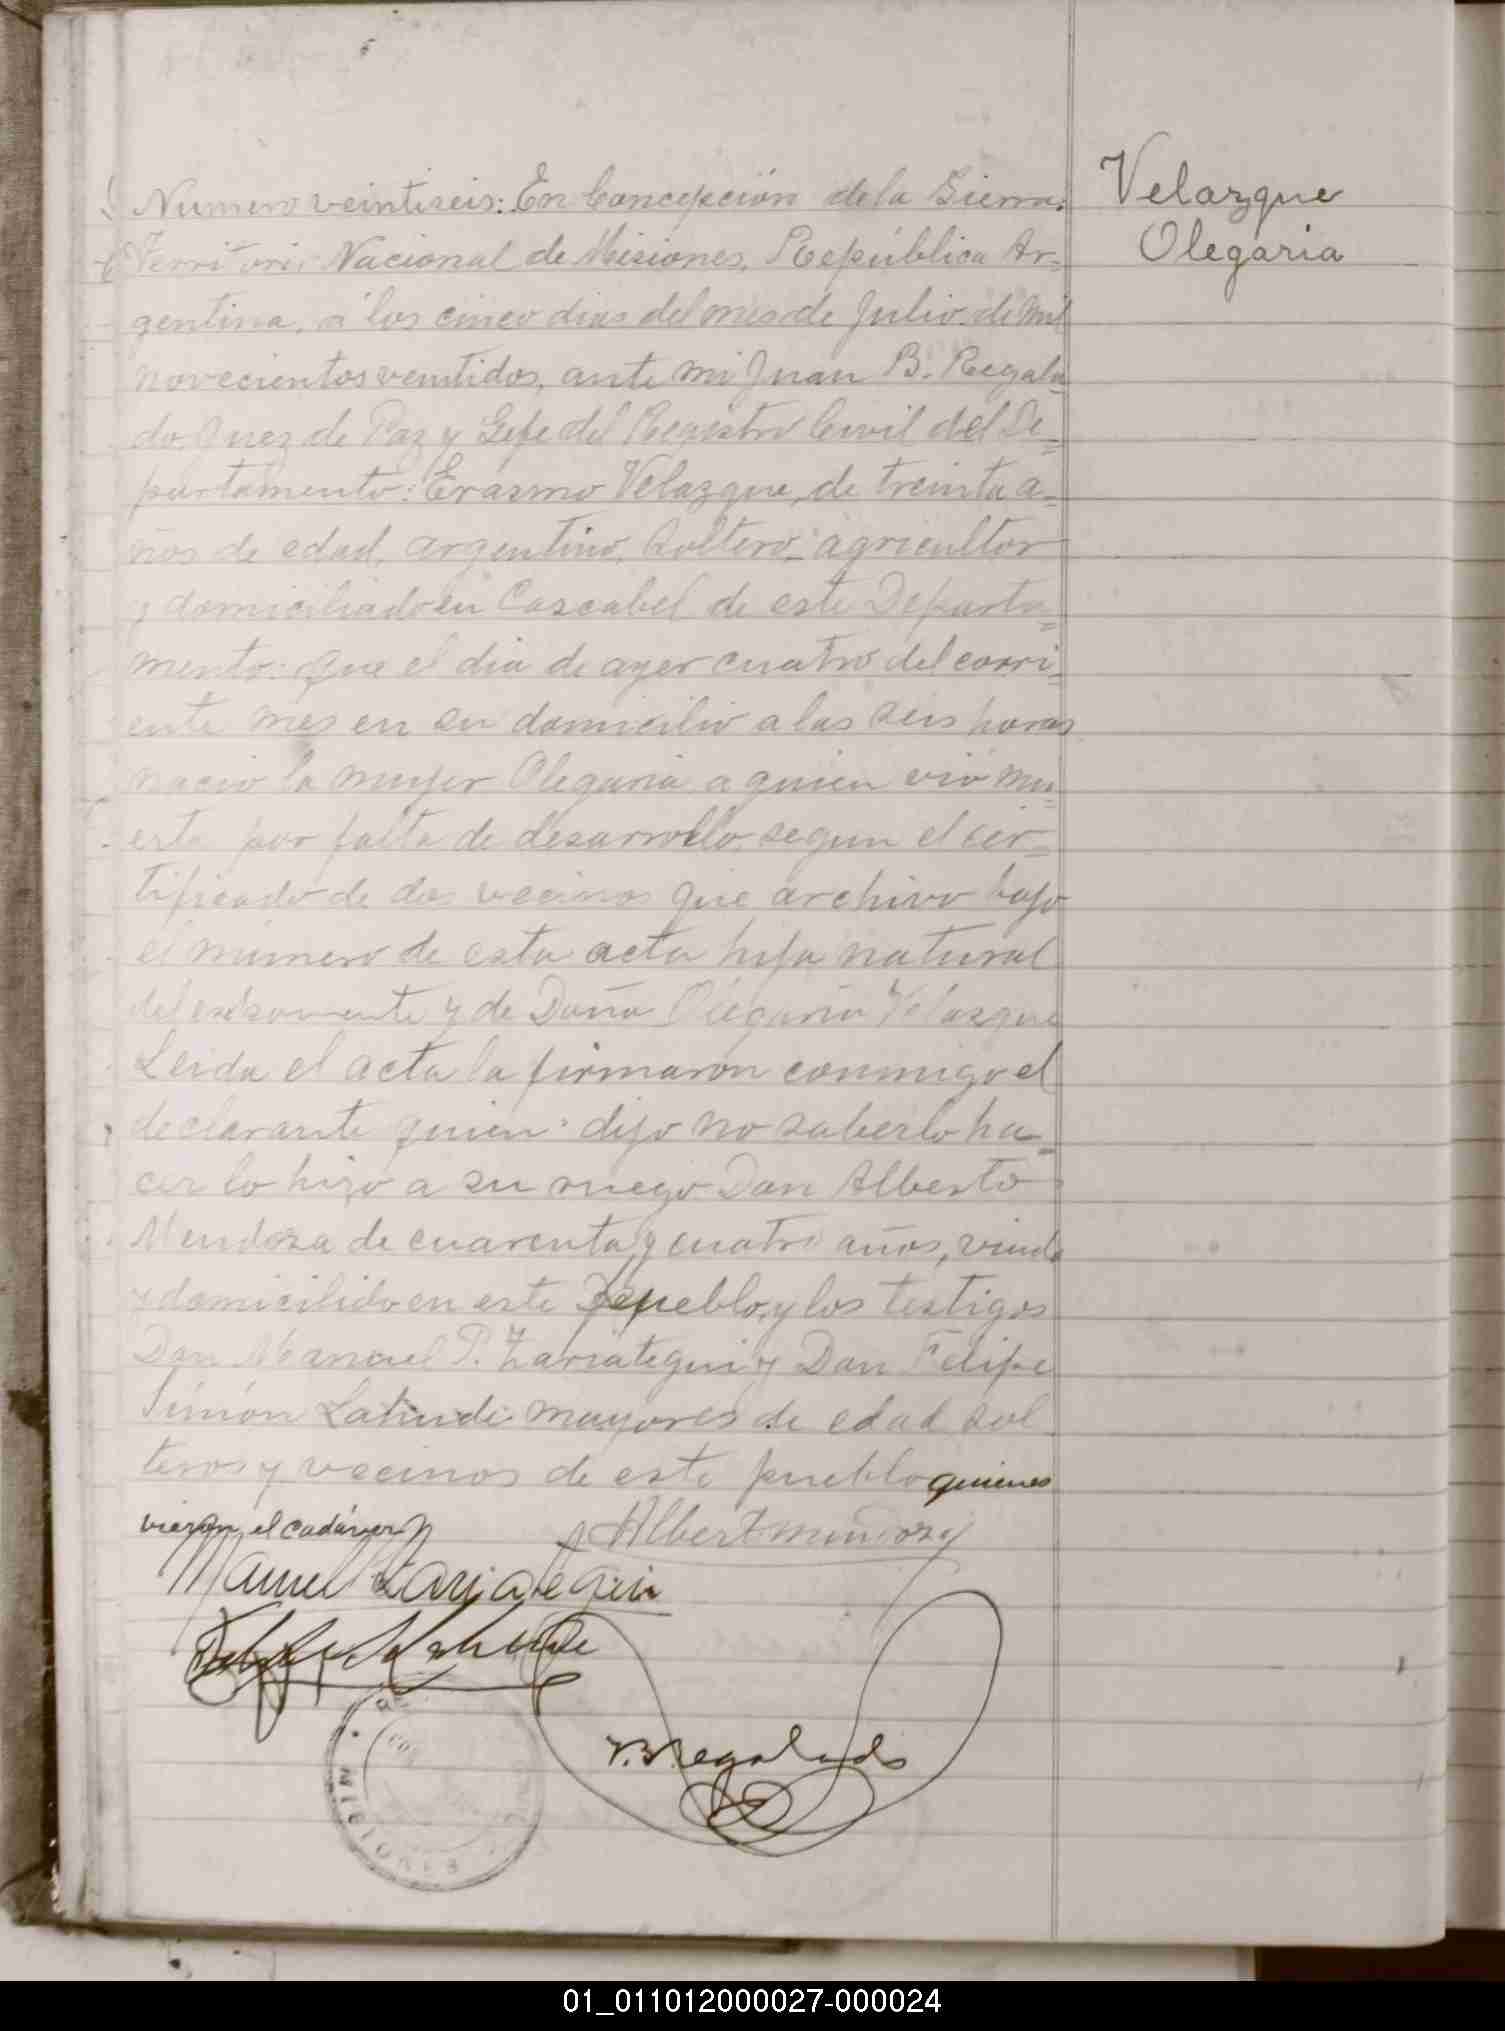 Velazque
Olegaria
Numero veintiseis: En Concepción de la Sierra,
Territorio Nacional de Misiones, República Ar=
gentina, á los cinco dias del mes de Julio de mil
novecientos veintidos, ante mi Juan B. Regala=
do, Juez de Paz y Gefe del Registro Civil del De=
partamento: Erasmo Velazque, de treinta a=
ños de edad, argentino, soltero, agricultor
y domiciliado en Cascabel de este Departa=
mento: que el dia de ayer cuatro del corri=
ente mes en su domicilio a las seis horas
nació la mujer Olegaria a quien vió mu=
erta por falta de desarrollo, segun el cer=
tificado de dos vecinos que archivo bajo
el número de esta acta hija natural
del y de Doña Olegaria Velazque
Leida el acta la firmaron conmigo el
declarante quien dijo no saberlo ha=
cer lo hizo a su ruego Don Alberto
Mendoza de cuarenta y cuatro años, viudo
y domicilido en este pueblo, y los testigos
Don Manuel P. Zariategui y Don Felipe
Simón Lahinde mayores de edad sol
teros y vecinos de este pueblo quienes
vieron el cadáver
Manuel Zariategui
J.B. Regalado
MISIONES
01_011012000027-000024